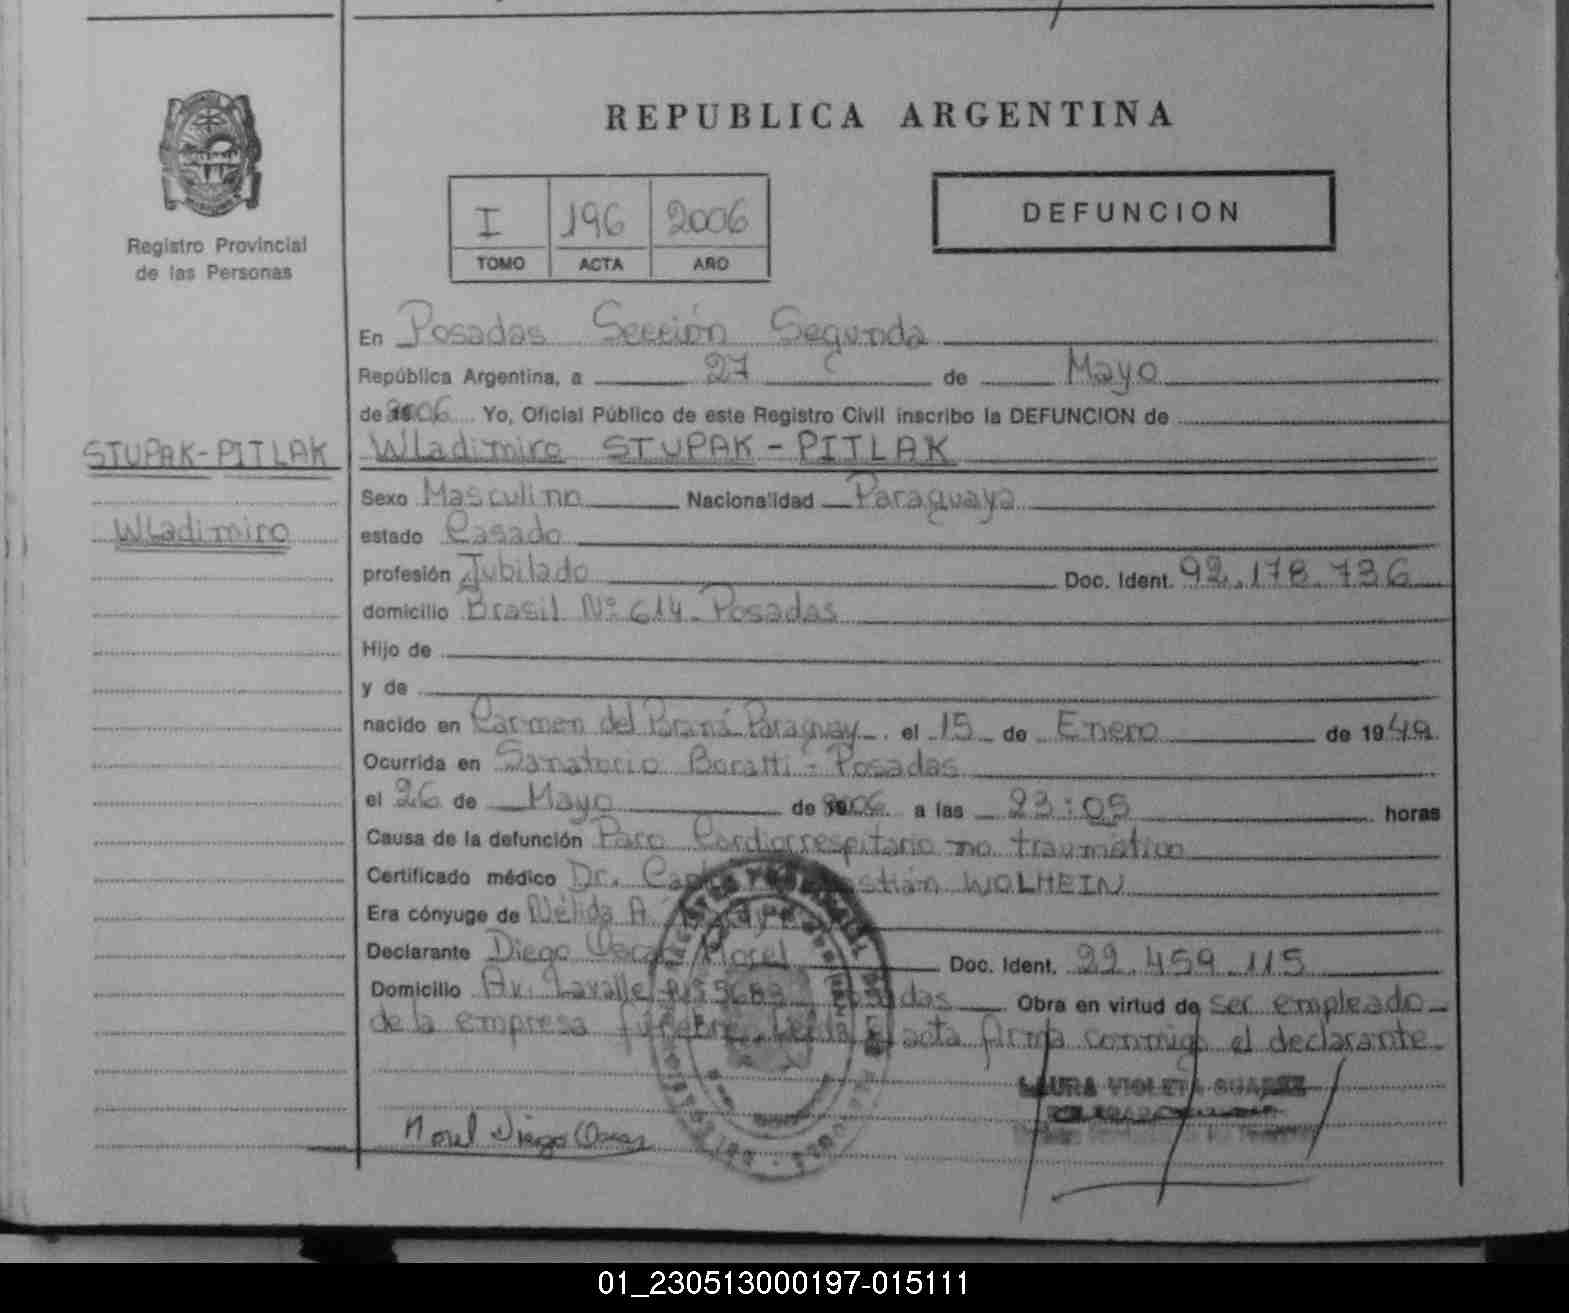 REPUBLICA ARGENTINA
Registro Provincial
de las Personas
I 196 2006
TOMO ACTA AÑO
DEFUNCION
En Posadas Sección Segunda
República Argentina, a 27 de Mayo
de 2006 Yo, Oficial Público de este Registro Civil inscribo la DEFUNCION de
STUPAK-PITLAK
Wladimiro
Wladimiro STUPAK-PITLAK
Sexo Masculino Nacionalidad Paraguaya
estado Casado
profesión Jubilado Doc. Ident. 92.178.736
domicilio Brasil Nº 614 - Posadas
Hijo de
y de
nacido en Carmen del Paraná Paraguay el 15 de Enero de 1949
Ocurrida en Sanatorio Boratti - Posadas
el 26 de Mayo de 2006 a las 23:05 horas
Causa de la defunción Paro Cardiorrespitario no traumático
Certificado médico Dr. WOLHEIN
Era cónyuge de Nélida A.
Declarante Diego Oscar Morel Doc. Ident. 22.459.115
Domicilio Av. Lavalle Obra en virtud de ser empleado
de la empresa fúnebre. Leída el acta firma conmigo el declarante.
LAURA VIOLETA SUAREZ
Morel Diego Oscar
01_230513000197-015111